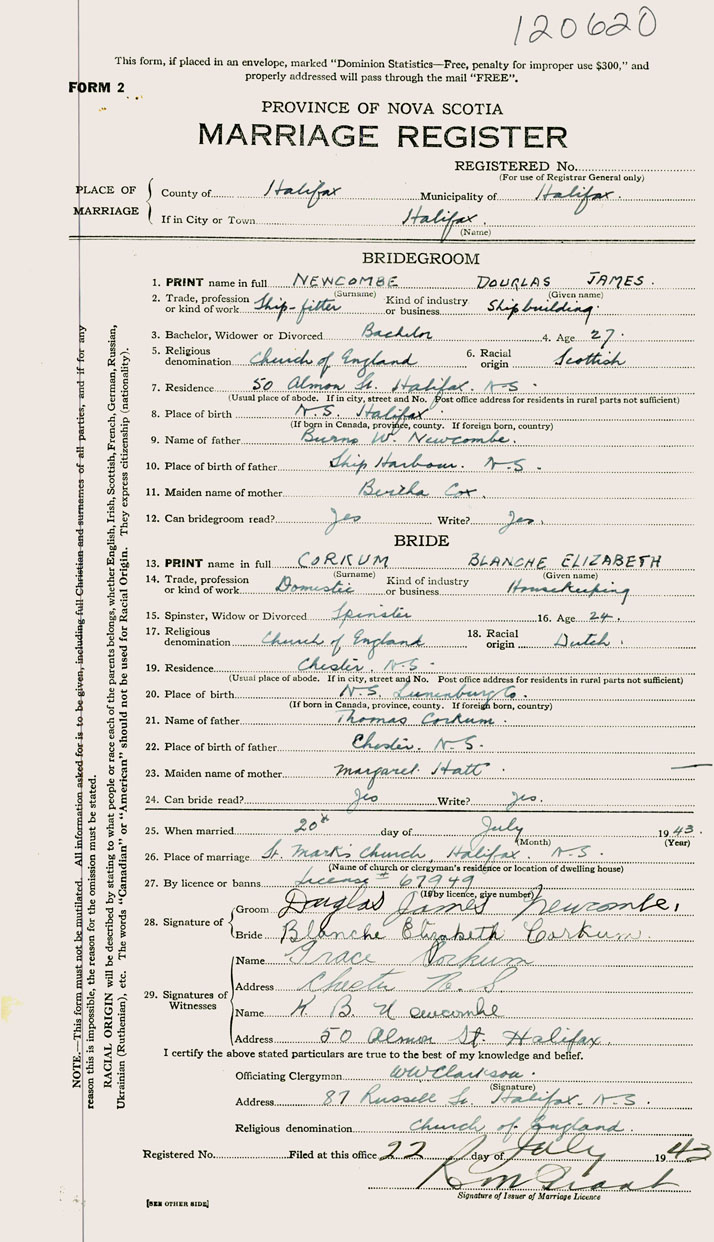 120620
This form, if placed in an envelope, marked "Dominion Statistics—Free, penalty for improper use $300," and
properly addressed will pass through the mail "FREE".
FORM 2
PROVINCE OF NOVA SCOTIA
MARRIAGE REGISTER
REGISTERED No.
(For use of Registrar General only)
PLACE OF MARRIAGE
County of Halifax Municipality of Halifax.
If in City or Town Halifax.
(Name)
BRIDEGROOM
1. PRINT name in full NEWCOMBE DOUGLAS JAMES.
(Surname) (Given name)
2. Trade, profession or kind of work Ship-fitter Kind of industry or business Shipbuilding
3. Bachelor, Widower or Divorced Bachelor 4. Age 27.
5. Religious denomination Church of England 6. Racial origin Scottish
7. Residence 50 Almon St. Halifax. N-S.
(Usual place of abode. If in city, street and No. Post office address for residents in rural parts not sufficient)
8. Place of birth N.S. Halifax.
(If born in Canada, province, county. If foreign born, country)
9. Name of father Burns W. Newcombe.
10. Place of birth of father Ship Harbour. N-S.
11. Maiden name of mother Bertha Cox.
12. Can bridegroom read? Yes Write? Yes.
BRIDE
13. PRINT name in full CORKUM BLANCHE ELIZABETH
(Surname) (Given name)
14. Trade, profession or kind of work Domestic Kind of industry or business Housekeeping
15. Spinster, Widow or Divorced Spinster 16. Age 24.
17. Religious denomination Church of England 18. Racial origin Dutch.
19. Residence Chester, N-S.
(Usual place of abode. If in city, street and No. Post office address for residents in rural parts not sufficient)
20. Place of birth N-S. Lunenburg Co.
(If born in Canada, province, county. If foreign born, country)
21. Name of father Thomas Corkum.
22. Place of birth of father Chester. N-S.
23. Maiden name of mother Margaret Hatt.
24. Can bride read? Yes Write? Yes.
25. When married 20th day of July 1943.
(Month) (Year)
26. Place of marriage St. Mark's Church, Halifax. N-S.
(Name of church or clergyman's residence or location of dwelling house)
27. By licence or banns License # 67949
(If by licence, give number)
28. Signature of
Groom Douglas James Newcombe.
Bride Blanche Elizabeth Corkum.
29. Signatures of Witnesses
Name Grace Corkum
Address Chester N. S
Name K. B. Newcombe
Address 50 Almon St. Halifax.
I certify the above stated particulars are true to the best of my knowledge and belief.
Officiating Clergyman WW Clarkson.
(Signature)
Address 87 Russell St. Halifax. N-S.
Religious denomination Church of England.
Registered No. Filed at this office 22 day of July 1943
Signature of Issuer of Marriage Licence
[SEE OTHER SIDE]
NOTE.—This form must not be mutilated. All information asked for is to be given, including full Christian and surnames of all parties, and if for any
reason this is impossible, the reason for the omission must be stated.
RACIAL ORIGIN will be described by stating to what people or race each of the parents belongs, whether English, Irish, Scottish, French, German, Russian,
Ukrainian (Ruthenian), etc. The words "Canadian" or "American" should not be used for Racial Origin. They express citizenship (nationality).